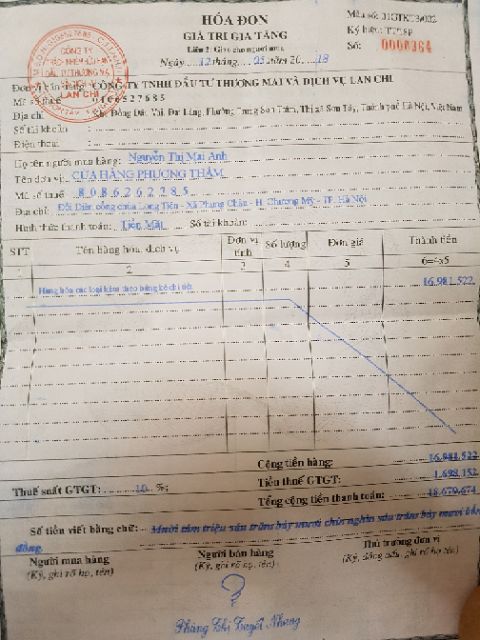 HÓA ĐƠN
GIÁ TRỊ GIA TĂNG
Liên 2: Giao cho người mua
Ngày 12 tháng 05 năm 2018
Mẫu số: 01GTKT3/002
Ký hiệu:
Số: 0000364
CÔNG TY
LAN CHI
Đơn vị bán hàng: CÔNG TY TNHH ĐẦU TƯ THƯƠNG MẠI VÀ DỊCH VỤ LAN CHI
Mã số thuế
Địa chỉ Đồng Dài, Phường Trung Sơn Trầm, Thị xã Sơn Tây, Thành phố Hà Nội, Việt Nam
Số tài khoản :
Điện thoại :
Họ tên người mua hàng: Nguyễn Thị Mai Anh
Tên đơn vị: CỬA HÀNG PHƯƠNG THẮM
Mã số thuế 8086262285
Địa chỉ: Đối Diện cổng chùa Long Tiên - Xã Phụng Châu - H. Chương Mỹ - TP. Hà Nội
Hình thức thanh toán: Tiền Mặt Số tài khoản:
STT Tên hàng hóa, dịch vụ Đơn vị tính Số lượng Đơn giá Thành tiền
1 2 3 4 5 6=4x5
Hàng hóa các loại kèm theo bảng kê chi tiết 16.981.522
Cộng tiền hàng: 16.981.522
Thuế suất GTGT: 10 %; Tiền thuế GTGT: 1.698.152
Tổng cộng tiền thanh toán: 18.679.674
Số tiền viết bằng chữ: Mười tám triệu sáu trăm bảy mươi chín nghìn sáu trăm bảy mươi bốn
đồng.
Người mua hàng Người bán hàng Thủ trưởng đơn vị
(Ký, ghi rõ họ, tên) (Ký, ghi rõ họ, tên) (Ký, đóng dấu, ghi rõ họ, tên)
Phùng Thị Tuyết Nhung